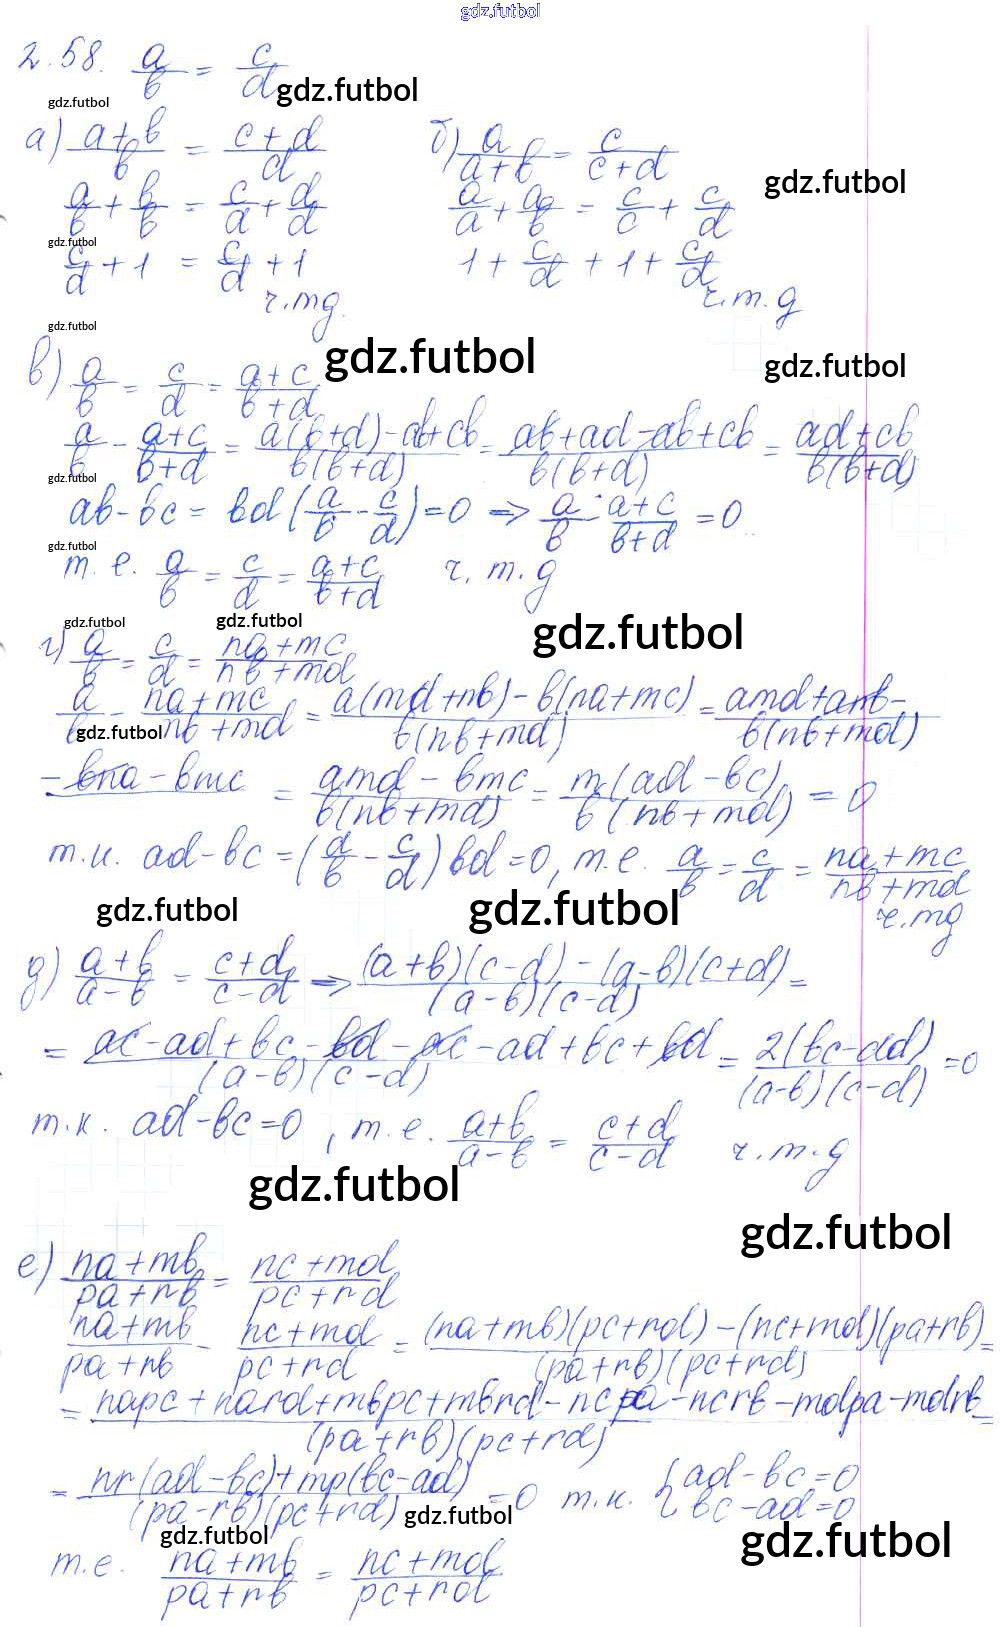 gdz.futbol
2.58. a/b = c/d
gdz.futbol
gdz.futbol
а) (a+b)/b = (c+d)/d
a/b + b/b = c/d + d/d
gdz.futbol
c/d + 1 = c/d + 1
ч.тд.
б) a/(a+b) = c/(c+d)
gdz.futbol
a/a + a/b = c/c + c/d
1 + c/d + 1 + c/d
ч.т.д
gdz.futbol
в) a/b = c/d = (a+c)/(b+d)
gdz.futbol
gdz.futbol
a/b - (a+c)/(b+d) = (a(b+d)-ab+cb)/(b(b+d)) = (ab+ad-ab+cb)/(b(b+d)) = (ad+cb)/(b(b+d))
gdz.futbol
ab-bc = bd(a/b - c/d) = 0 => a/b - (a+c)/(b+d) = 0
gdz.futbol
т.е. a/b = c/d = (a+c)/(b+d) ч.т.д
gdz.futbol
gdz.futbol
gdz.futbol
г) a/b = c/d = (na+mc)/(nb+md)
a/b - (na+mc)/(nb+md) = (a(md+nb)-b(na+mc))/(b(nb+md)) = (amd+anb-)/(b(nb+md))
gdz.futbol
-bna-bmc = (amd-bmc)/(b(nb+md)) = (m(ad-bc))/(b(nb+md)) = 0
т.к. ad-bc = (a/b - c/d)bd = 0, т.е. a/b = c/d = (na+mc)/(nb+md)
ч.тд
gdz.futbol
gdz.futbol
д) (a+b)/(a-b) = (c+d)/(c-d) => ((a+b)(c-d)-(a-b)(c+d))/((a-b)(c-d)) =
= (ac-ad+bc-bd-ac-ad+bc+bd)/((a-b)(c-d)) = (2(bc-ad))/((a-b)(c-d)) = 0
т.к. ad-bc=0, т.е. (a+b)/(a-b) = (c+d)/(c-d) ч.т.д
gdz.futbol
gdz.futbol
е) (na+mb)/(pa+rb) = (nc+md)/(pc+rd)
(na+mb)/(pa+rb) - (nc+md)/(pc+rd) = ((na+mb)(pc+rd)-(nc+md)(pa+rb))/((pa+rb)(pc+rd)) =
= (napc+nard+mbpc+mbrd-ncpa-ncrb-mdpa-mdrb)/((pa+rb)(pc+rd)) =
= (nr(ad-bc)+mp(bc-ad))/((pa-rb)(pc+rd)) = 0 т.к. { ad-bc=0 bc-ad=0
gdz.futbol
gdz.futbol
gdz.futbol
т.е. (na+mb)/(pa+rb) = (nc+md)/(pc+rd)